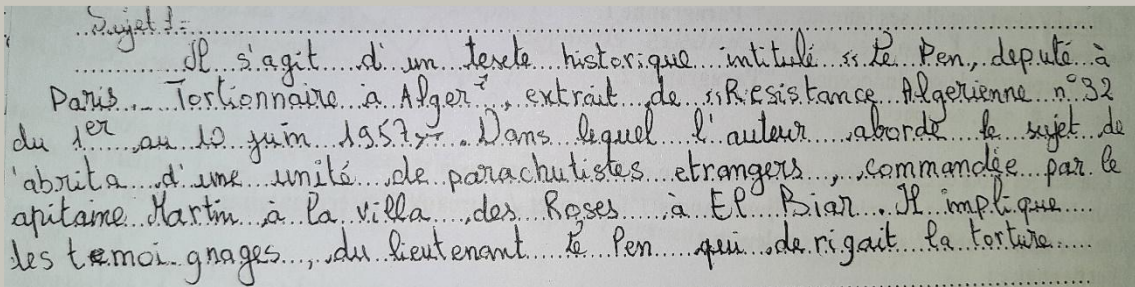 Sujet 1:
Il s'agit d'un texte historique intitulé «Le Pen, député à
Paris - Tortionnaire à Alger», extrait de «Resistance Algerienne n°32
du 1er au 10 juin 1957». Dans lequel l'auteur aborde le sujet de
'abrita d'une unité de parachutistes etrangers, commandée par le
apitaine Martin à la villa des Roses à El Biar. Il implique
les temoignages, du lieutenant le Pen qui derigait la torture